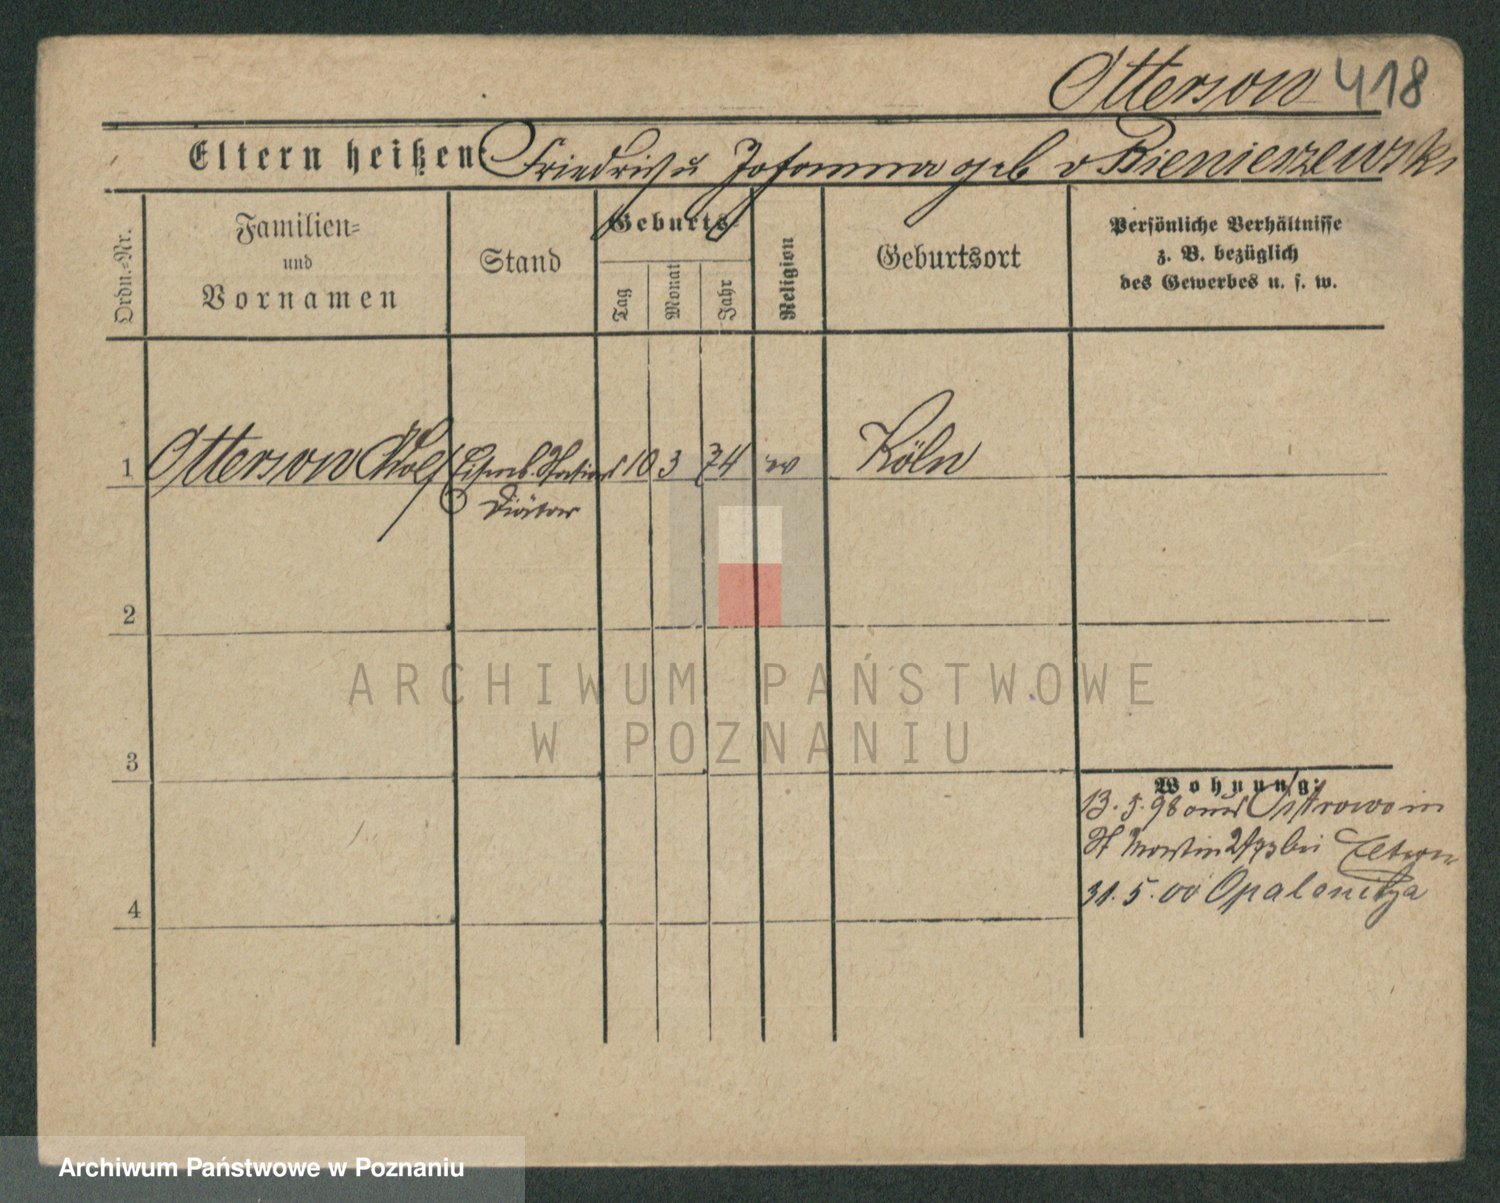 Otterson 418
Eltern heißen: Friedrich u Johanna geb v Bienieszewski
Ordn.=Nr.
Familien=
und
Vornamen
Stand
Geburts=
Tag
Monat
Jahr
Religion
Geburtsort
Persönliche Verhältnisse
z. B. bezüglich
des Gewerbes u. s. w.
1 Otterson Adolf Eisenb. Stations 10 3 74 Köln
Diätar
2
3
4
Wohnung:
13.5.98 aus Ostrowo in
St Martin bei Eltern
31.5.00 Opalenitza
ARCHIWUM PAŃSTWOWE
W POZNANIU
Archiwum Państwowe w Poznaniu